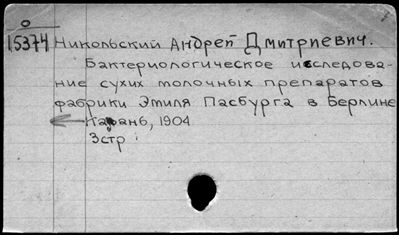 О
15374 Никольский Андрей Дмитриевич.
Бактериологическое исследова-
ние сухих молочных препаратов
фабрики Эмиля Пасбурга в Берлине
Казань, 1904
3стр